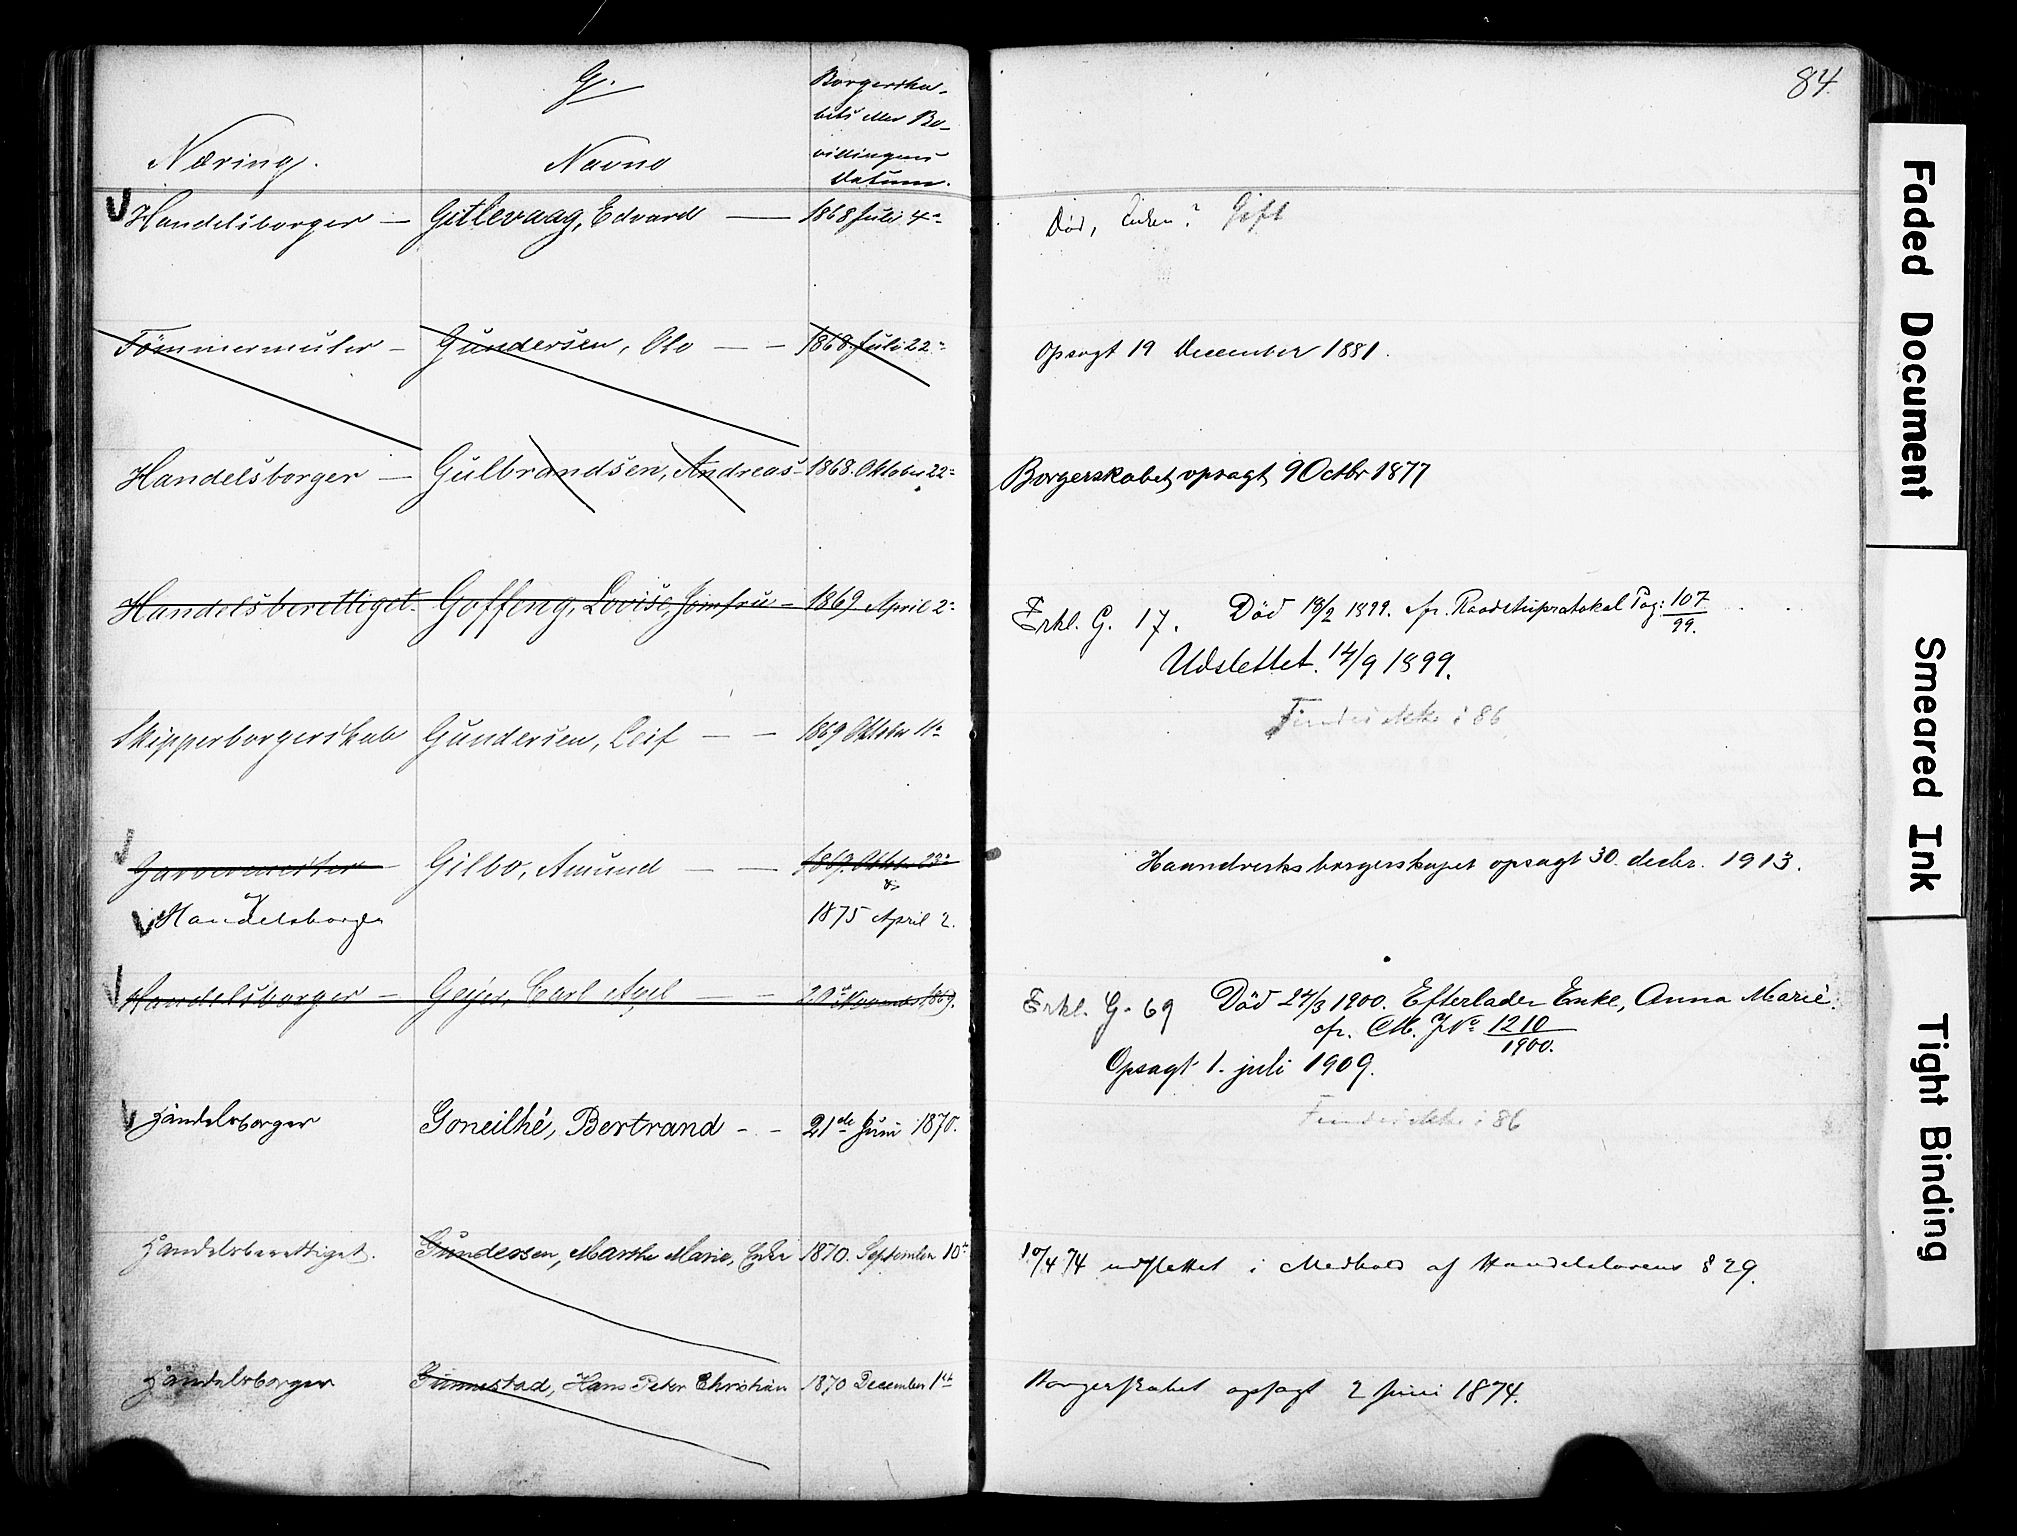 G.
Næring.
Navne
Borgerska-
bets eller Be-
villingens
Datum.
84.
Handelsborger — Gitlevaag, Edvard — 1868 Juli 4de
Död, Enken? Gift
Tömmermester — Gundersen, Ole — — 1868 Juli 22de
Opsagt 19 December 1881.
Handelsborger — Gulbrandsen, Andreas — 1868. Oktober 22de
Borgerskabet opsagt 9 Octbr 1877
Handelsberettiget. Goffeng, Lovise, Jomfru — 1869 April 2de
Erkl. G. 17. Död 18/2 1899. cfr. Raadstuprotokol Pag: 107/99.
Udslettet. 14/9 1899.
Findes ikke i 86
Skipperborgerskab Gundersen, Leif — — 1869 Oktober 11te
Garvermester — Gilbo, Amund — — 1869. Oktbr. 23de
og &
Handelsborger 1875 April 2.
Haandverksborgerskapet opsagt 30. decbr. 1913.
Handelsborger — Geijer, Carl Axel — — 20de November 1869.
Erkl. G. 69 Död 24/3 1900. Efterlader Enke, Anna Marie.
cfr. CM. JNo 1210/1900.
Opsagt 1. juli 1909.
Handelsborger Goneilhé, Bertrand - - 21de Juni 1870.
Findes ikke i 86
Handelsberettiget. Gundersen, Marthe Marie, Enke 1870. September 10de
10/4 74 udslettet i Medhold af Handelslovens § 29.
Handelsborger Gimnestad, Hans Peter Christian 1870 December 1ste
Borgerskabet opsagt 2 Juni 1874.
Faded Document
Smeared Ink
Tight Binding